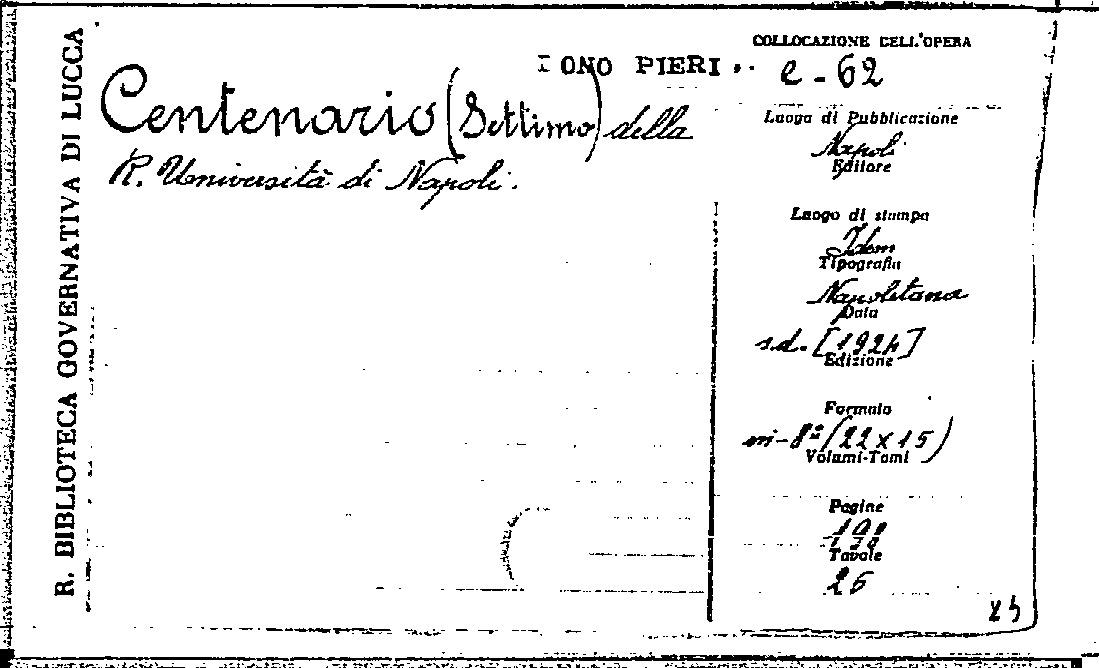 R. BIBLIOTECA GOVERNATIVA DI LUCCA
ONO PIERI
COLLOCAZIONE DELL'OPERA
e-62
Centenario (Settimo) della
R. Università di Napoli.
Luogo di Pubblicazione
Napoli
Editore
Luogo di stampa
Idem
Tipografia
Napoletana
Data
s.d. [1924]
Edizione
Formato
in-8° (22x15)
Volumi-Tomi
Pagine
Tavole
26